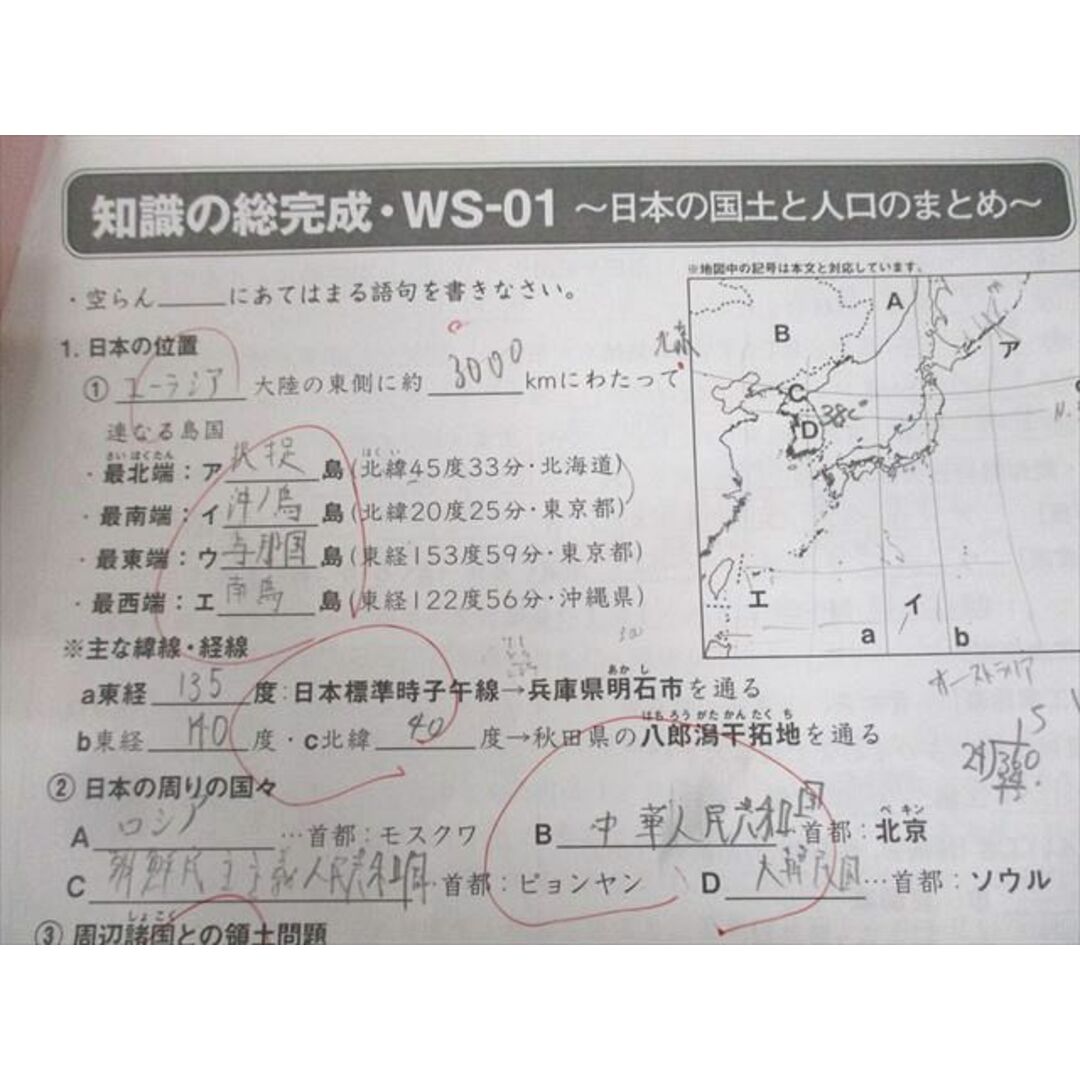 知識の総完成・WS-01 〜日本の国土と人口のまとめ〜
※地図中の記号は本文と対応しています。
・空らん____にあてはまる語句を書きなさい。
1. 日本の位置
① ユーラシア 大陸の東側に約 3000 kmにわたって
連なる島国
さいほくたん はくい
・最北端：ア 択捉 島（北緯45度33分・北海道）
・最南端：イ 沖ノ鳥 島（北緯20度25分・東京都）
・最東端：ウ 与那国 島（東経153度59分・東京都）
・最西端：エ 南鳥 島（東経122度56分・沖縄県）
※主な緯線・経線
あかし
a東経 135 度：日本標準時子午線→兵庫県明石市を通る
はちろうがたかんたくち
b東経 140 度・c北緯 40 度→秋田県の八郎潟干拓地を通る
② 日本の周りの国々
A ロシア …首都：モスクワ
B 中華人民共和国 首都：北京
ペキン
C 朝鮮民主主義人民共和国 首都：ピョンヤン
D 大韓民国 …首都：ソウル
しょこく
③ 周辺諸国との領土問題
A
B
C
D
38°
ア
エ
イ
a
b
オーストラリア
15
24)360